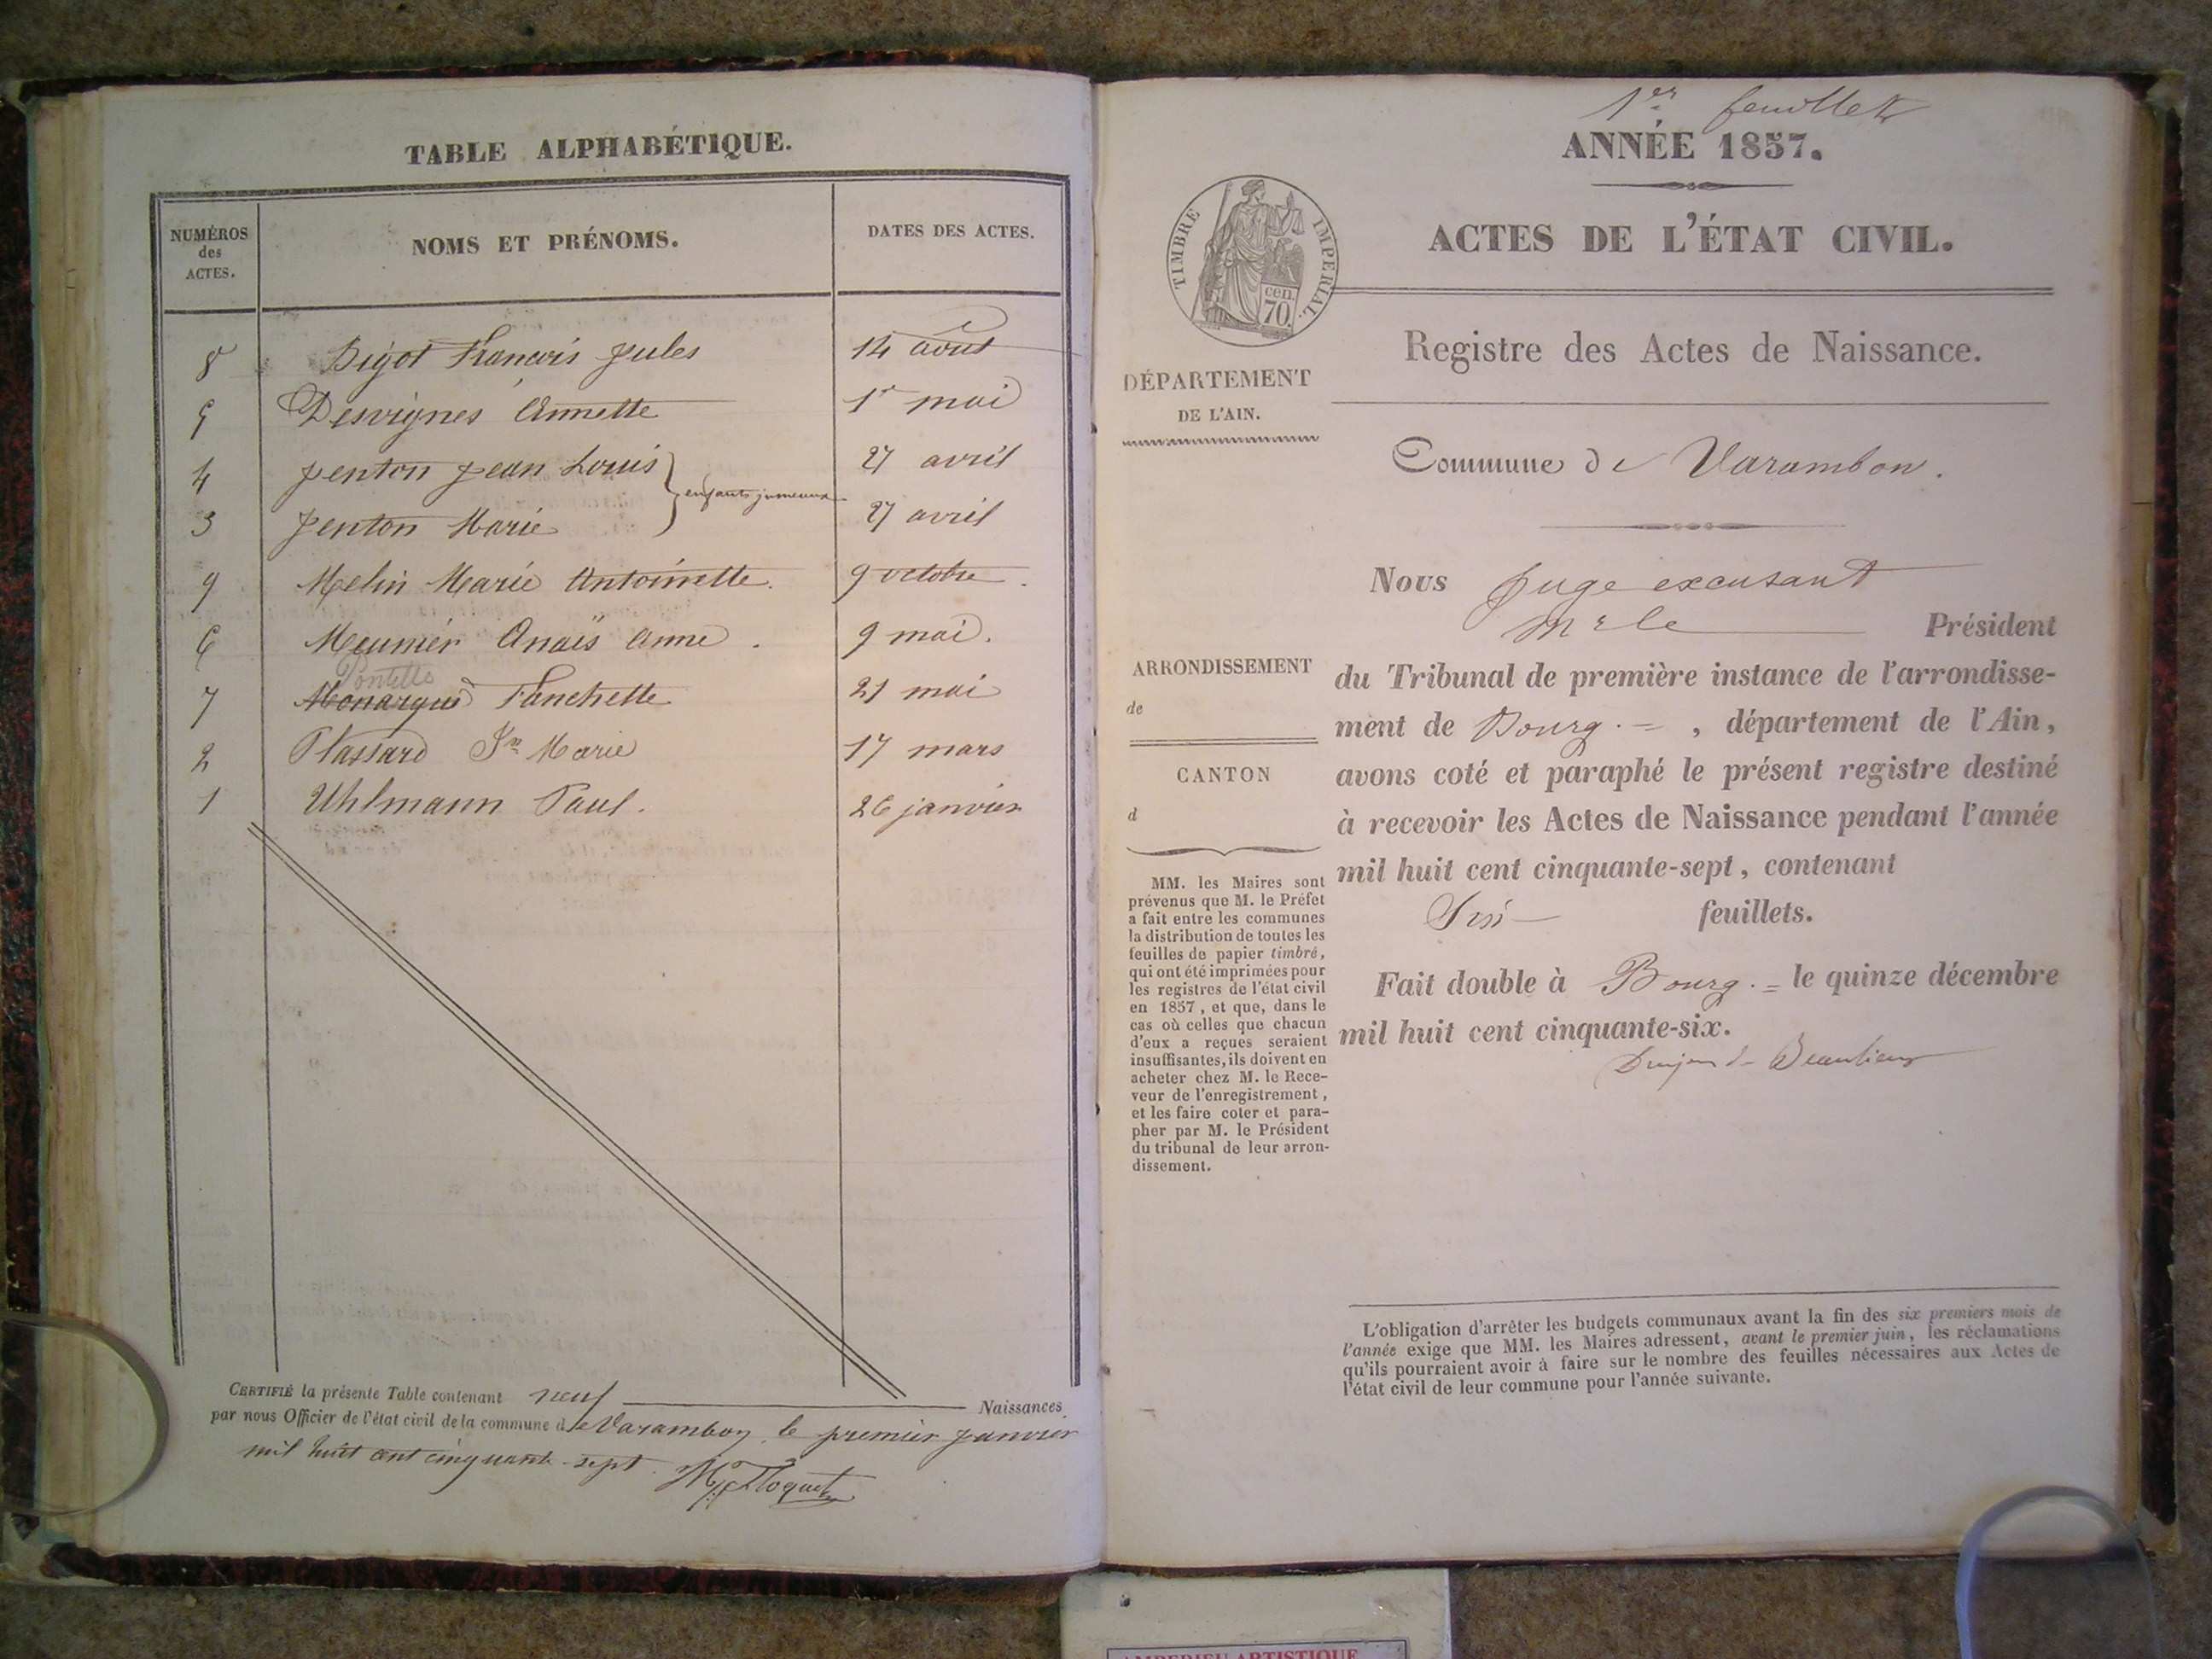 TABLE ALPHABÉTIQUE.
NUMÉROS des ACTES.
NOMS ET PRÉNOMS.
DATES DES ACTES.
8 Bigot François Jules 14 août
5 Desvignes Annette 1er mai
4 Jenton Jean Louis 27 avril
enfants jumeaux
3 Jenton Marie 27 avril
9 Melin Marie Antoinette. 9 octobre.
6 Meunier Anaïs Anne. 9 mai.
Pontelle
7 Monarque Fanchette 21 mai
2 Plassard Jn Marie 17 mars
1 Uhlmann Paul. 26 janvier
CERTIFIÉ la présente Table contenant neuf Naissances
par nous Officier de l'état civil de la commune de Varambon le premier janvier
mil huit cent cinquante-sept.
1er feuillet
ANNÉE 1857.
ACTES DE L'ÉTAT CIVIL.
TIMBRE IMPERIAL.
cen. 70.
Registre des Actes de Naissance.
DÉPARTEMENT
DE L'AIN.
Commune de Varambon.
Nous Juge excusant
Mr le Président
du Tribunal de première instance de l'arrondisse-
ment de Bourg. = , département de l'Ain,
avons coté et paraphé le présent registre destiné
à recevoir les Actes de Naissance pendant l'année
mil huit cent cinquante-sept, contenant
Six feuillets.
Fait double à Bourg. = le quinze décembre
mil huit cent cinquante-six.
Beaulieu
ARRONDISSEMENT
de
CANTON
d
MM. les Maires sont
prévenus que M. le Préfet
a fait entre les communes
la distribution de toutes les
feuilles de papier timbré,
qui ont été imprimées pour
les registres de l'état civil
en 1857, et que, dans le
cas où celles que chacun
d'eux a reçues seraient
insuffisantes, ils doivent en
acheter chez M. le Rece-
veur de l'enregistrement,
et les faire coter et para-
pher par M. le Président
du tribunal de leur arron-
dissement.
L'obligation d'arrêter les budgets communaux avant la fin des six premiers mois de
l'année exige que MM. les Maires adressent, avant le premier juin, les réclamations
qu'ils pourraient avoir à faire sur le nombre des feuilles nécessaires aux Actes de
l'état civil de leur commune pour l'année suivante.
AMBERIEU ARTISTIQUE